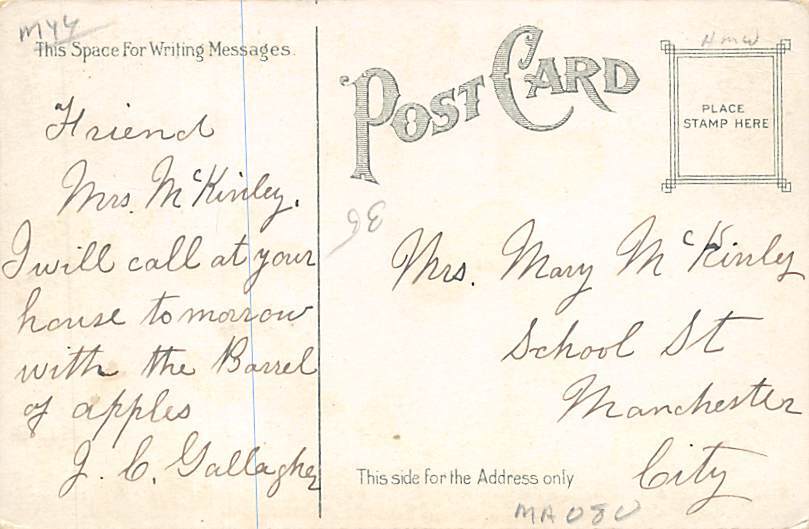 This Space For Writing Messages.
Friend
Mrs. McKinley.
I will call at your
house tomorrow
with the Barrel
of apples
J. C. Gallagher
POST CARD
PLACE
STAMP HERE
Mrs. Mary McKinley
School St
Manchester
City
This side for the Address only